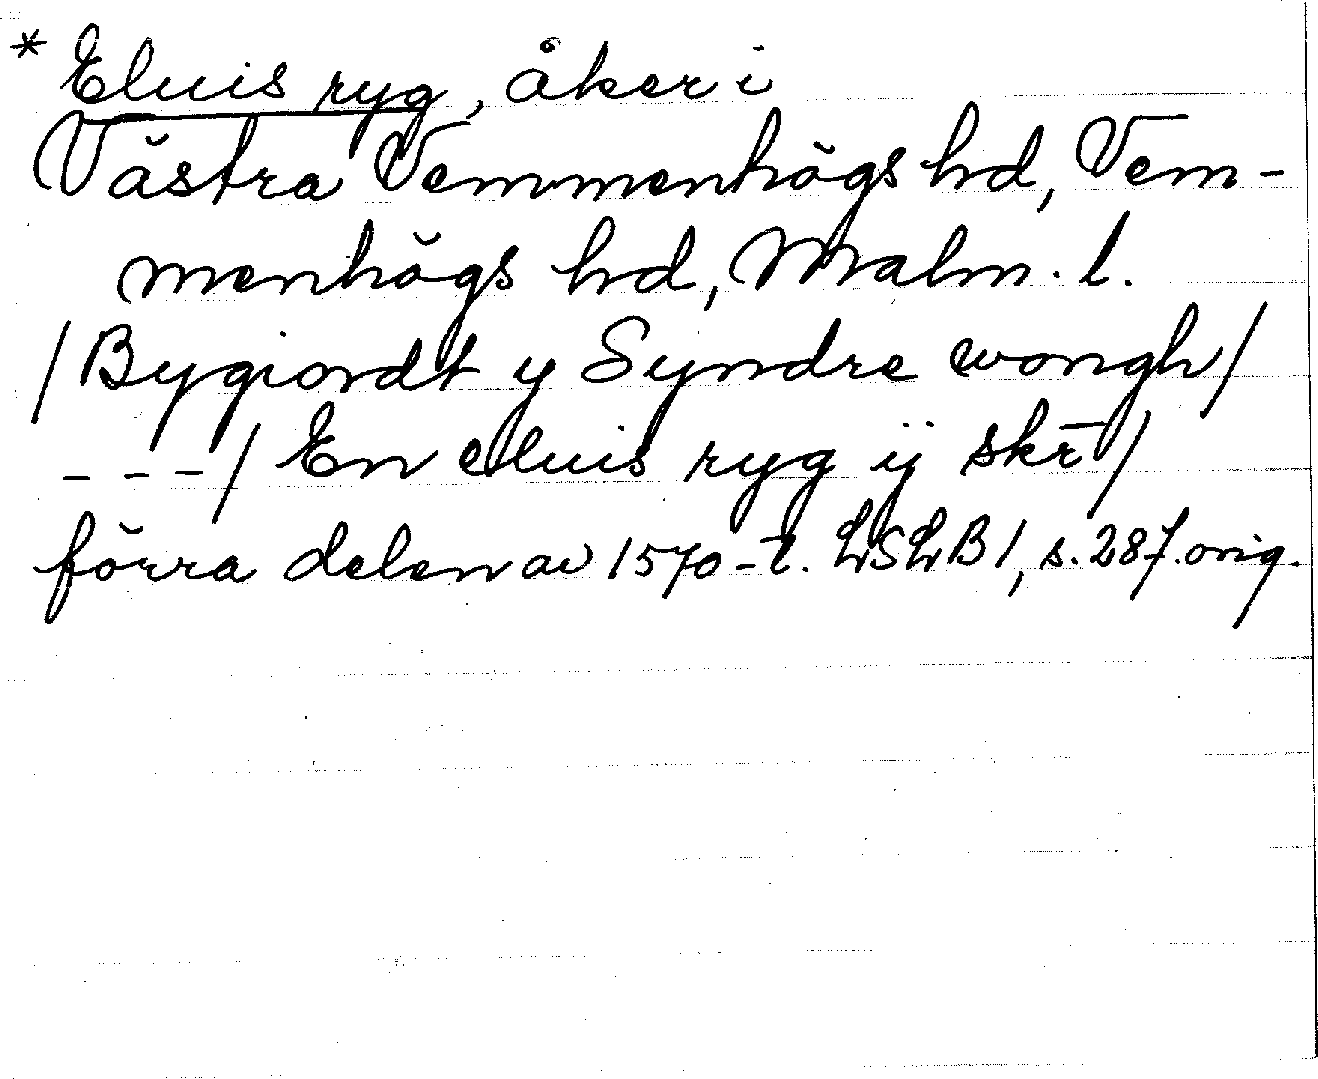 * Eluis ryg, åker i
Västra Vemmenhögs hd, Vem-
menhögs hd, Malm. l.
/Bygiordt y Syndre wongh/
- - -/ En eluis ryg ÿ skr̄/
förra delen av 1570-t. LSLB 1, s. 287. orig.